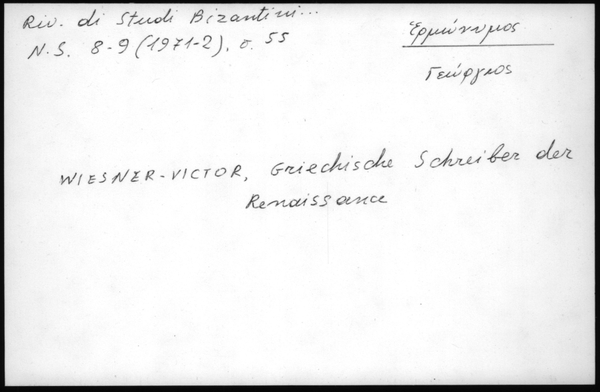 Riv. di Studi Bizantini...
N.S. 8-9 (1971-2), σ. 55
Ἑρμώνυμος
Γεώργιος
WIESNER-VICTOR, Griechische Schreiber der
Renaissance